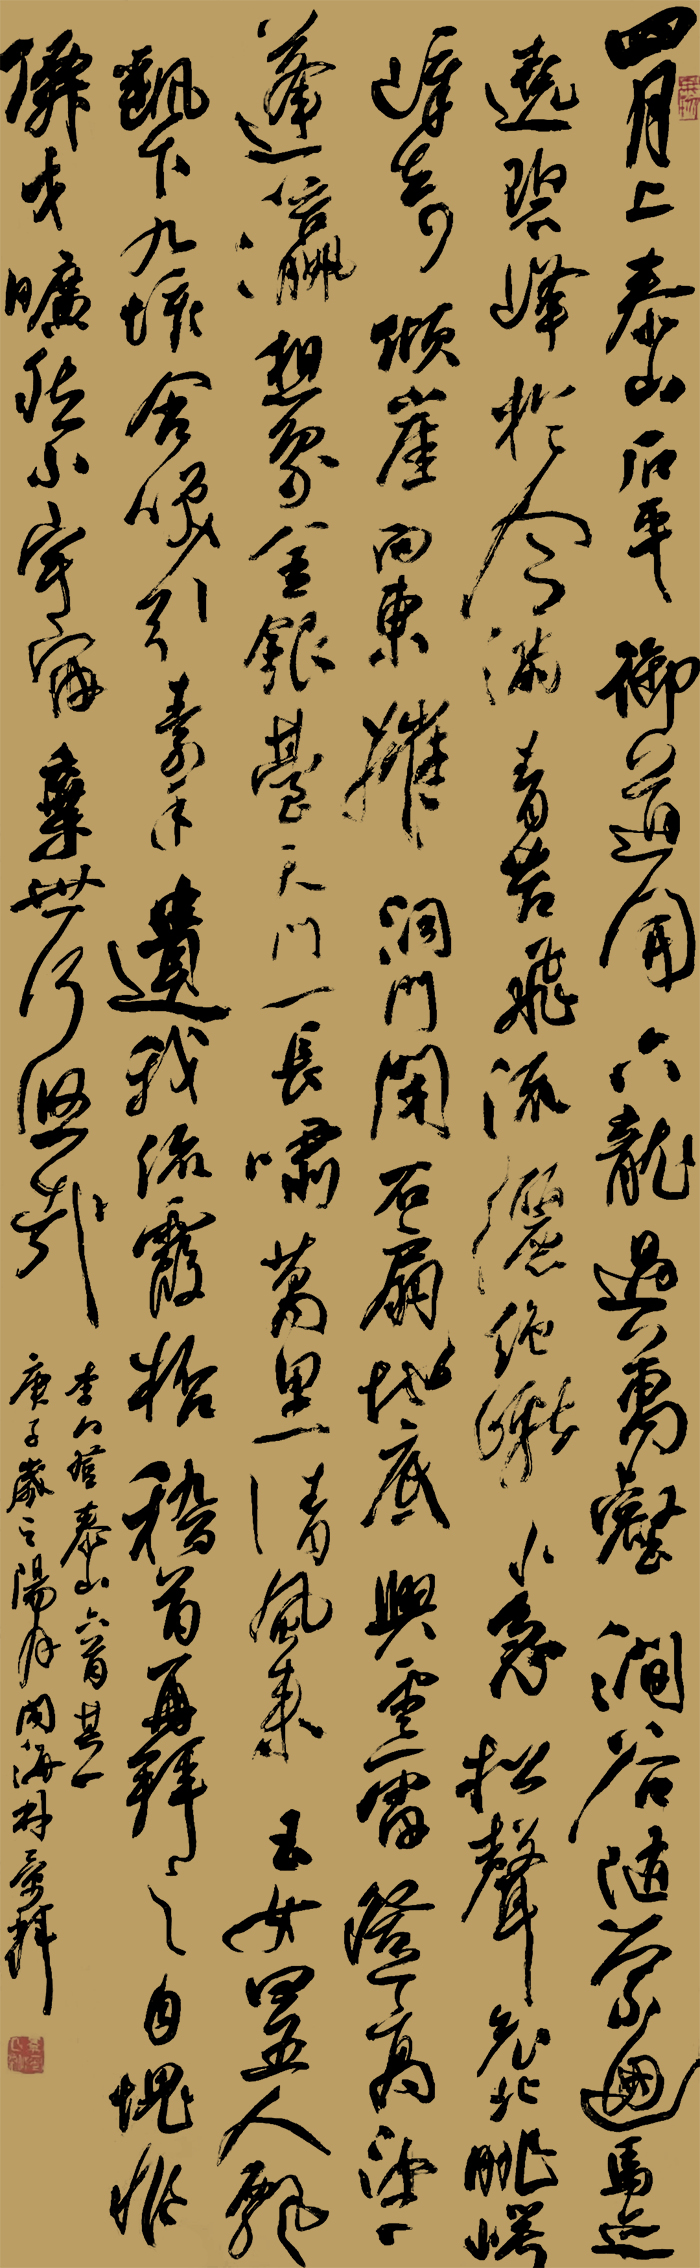 四月上泰山石平御道開六龍過萬壑澗谷隨縈迴馬跡
遶碧峰於今滿青苔飛流灑絶巘水急松聲哀北眺崿
嶂奇傾崖向東摧洞門閉石扇地底興雲雷登高望
蓬瀛想象金銀臺天門一長嘯萬里清風來玉女四五人飄
飖下九垓含笑引素手遺我流霞杯稽首再拜之自愧非
僊才曠然小宇宙棄世何悠哉
李白登泰山六首其一
庚子歲之陽月閩海林拜